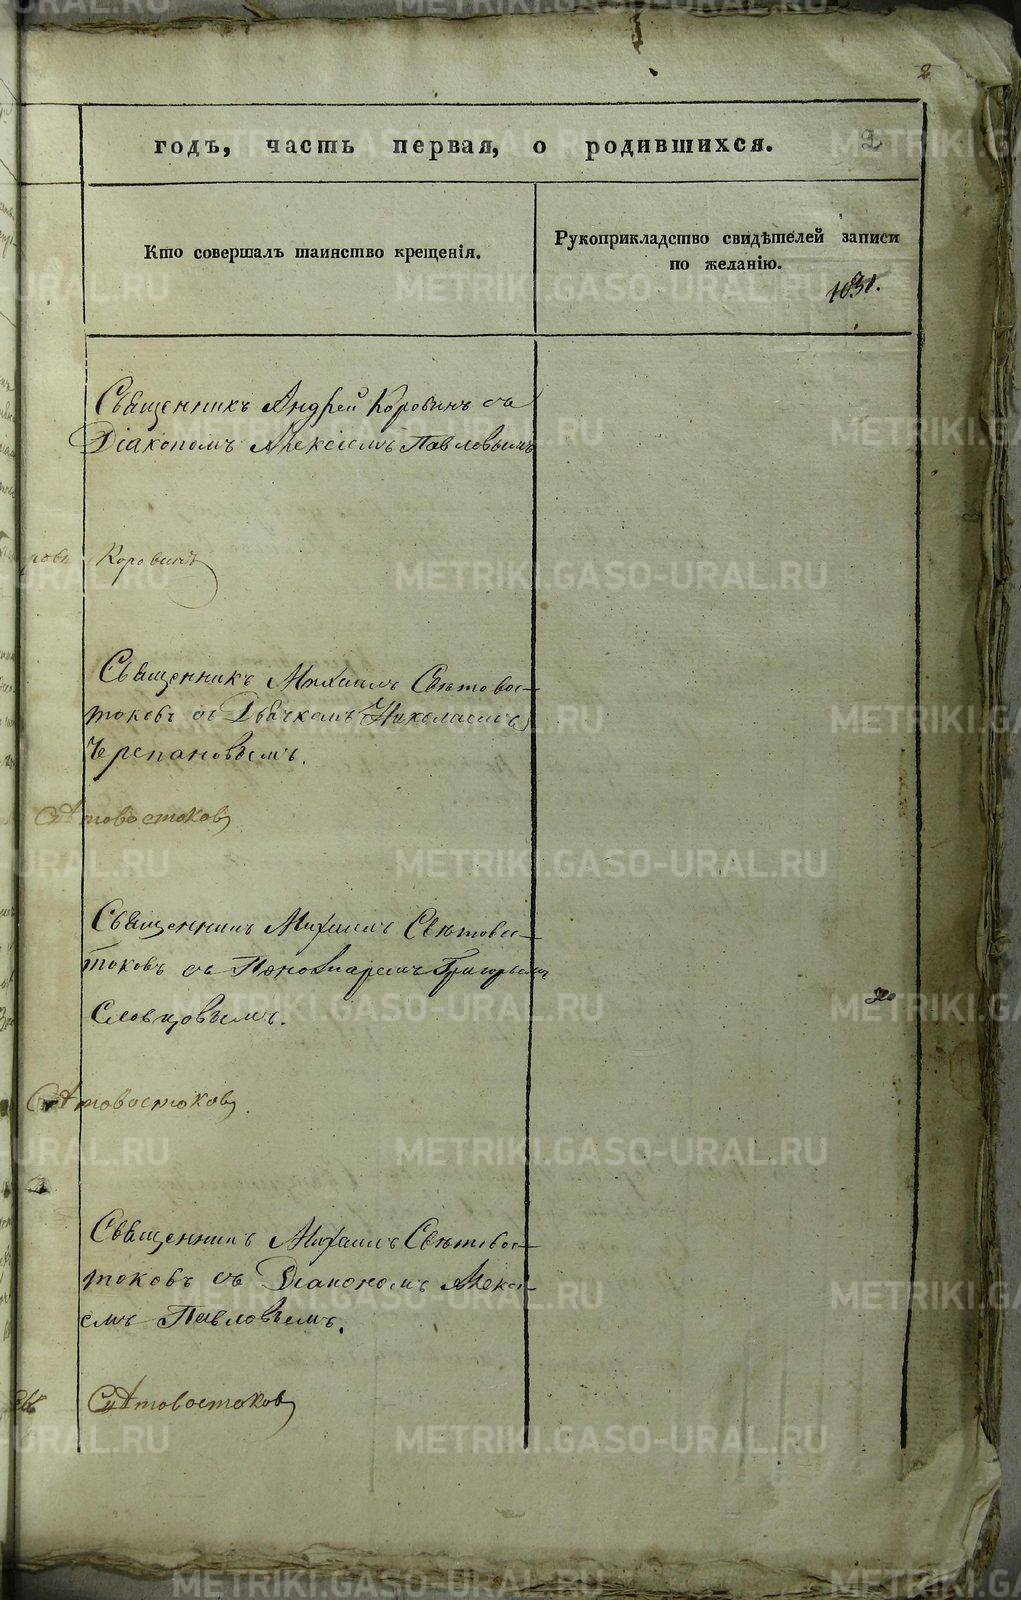 2
годъ, часть первая, о родившихся. 2
Кто совершалъ таинство крещенія.
Рукоприкладство свидѣтелей записи
по желанію.
1031.
Священникъ Андрей Коровинъ съ
Діакономъ Алексіемъ Павловымъ
Коровинъ
Священникъ Михаилъ Свѣтовос-
токовъ съ Дьячкомъ Николаемъ
Черепановымъ.
Свѣтовостоковъ
Священникъ Михаилъ Свѣтовос-
токовъ съ Пономаремъ Григорьемъ
Словцовымъ.
20
Свѣтовостоковъ
Священникъ Михаилъ Свѣтовос-
токовъ съ Діакономъ Алексі-
емъ Павловымъ.
Свѣтовостоковъ
METRIKI.GASO-URAL.RU